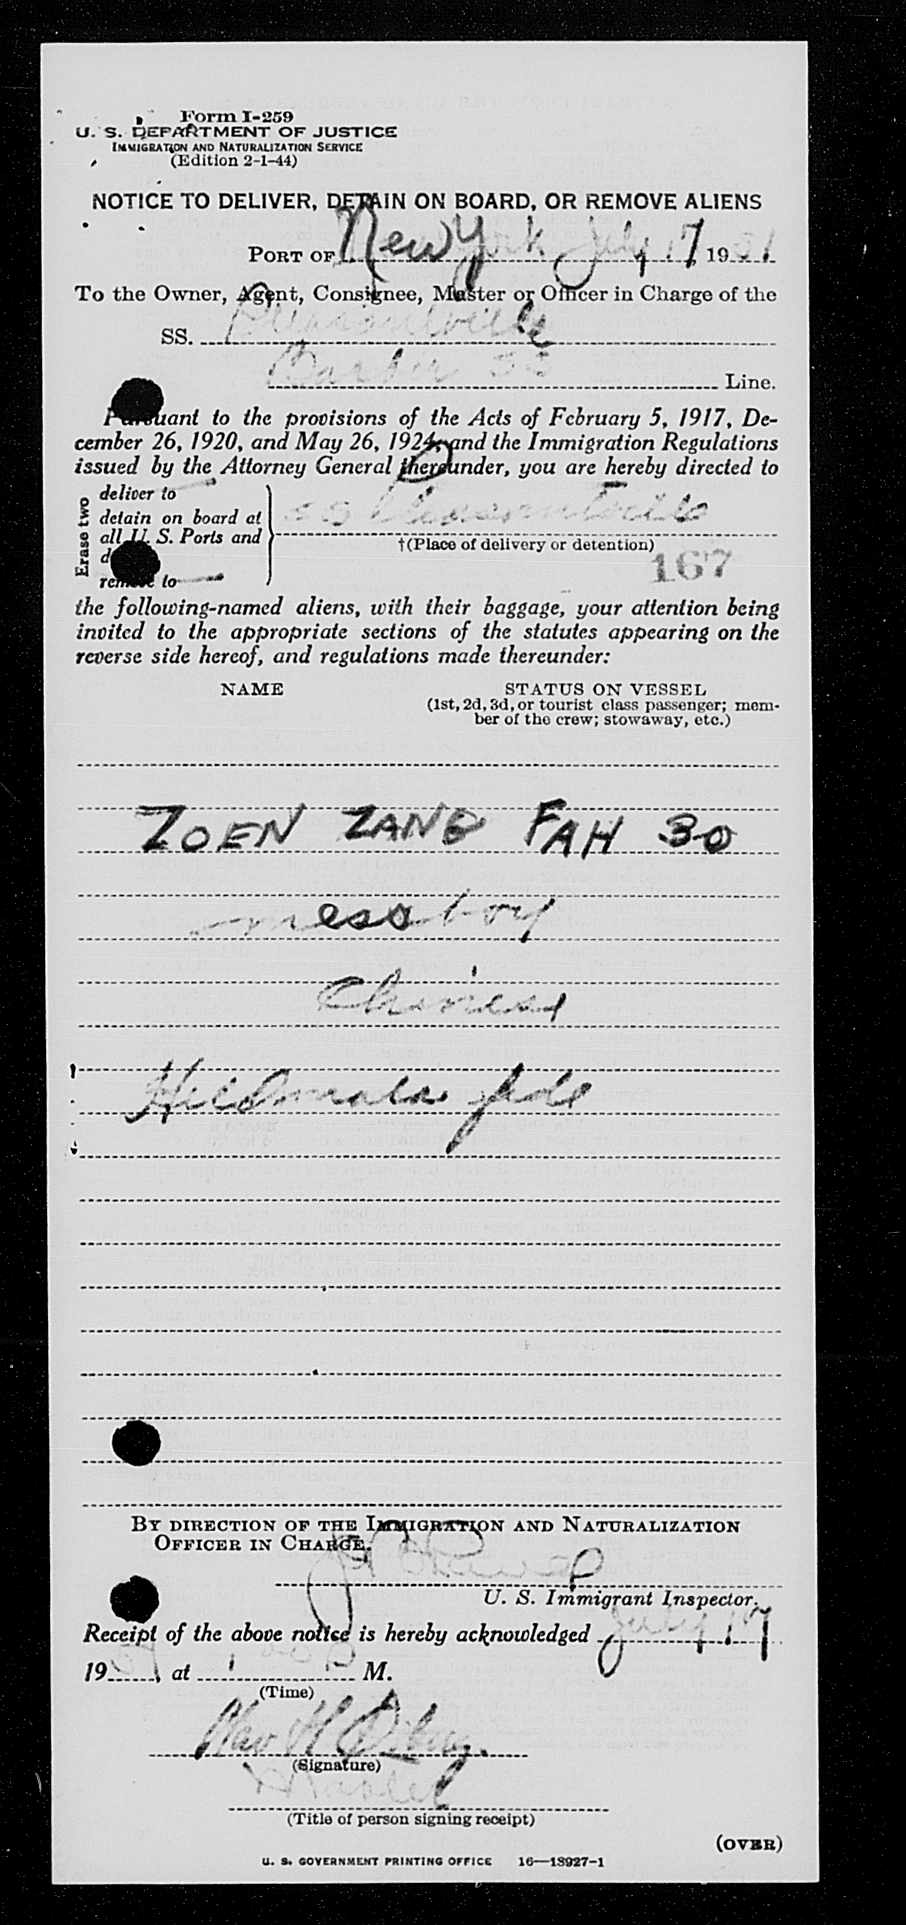 Form I-259
U. S. DEPARTMENT OF JUSTICE
IMMIGRATION AND NATURALIZATION SERVICE
(Edition 2-1-44)
NOTICE TO DELIVER, DETAIN ON BOARD, OR REMOVE ALIENS
PORT OF New York July 17, 1951
To the Owner, Agent, Consignee, Master or Officer in Charge of the
SS. Pleasantville
Barber SS Line.
Pursuant to the provisions of the Acts of February 5, 1917, De-
cember 26, 1920, and May 26, 1924, and the Immigration Regulations
issued by the Attorney General thereunder, you are hereby directed to
Erase two
deliver to
detain on board at
all U. S. Ports and
remove to
SS Pleasantville
†(Place of delivery or detention)
167
the following-named aliens, with their baggage, your attention being
invited to the appropriate sections of the statutes appearing on the
reverse side hereof, and regulations made thereunder:
NAME STATUS ON VESSEL
(1st, 2d, 3d, or tourist class passenger; mem-
ber of the crew; stowaway, etc.)
ZOEN ZANG FAH 30
messboy
Chinese
BY DIRECTION OF THE IMMIGRATION AND NATURALIZATION
OFFICER IN CHARGE.
U. S. Immigrant Inspector.
Receipt of the above notice is hereby acknowledged July 17
19 51, at M.
(Time)
(Signature)
Master
(Title of person signing receipt)
(OVER)
U. S. GOVERNMENT PRINTING OFFICE 16—18927-1